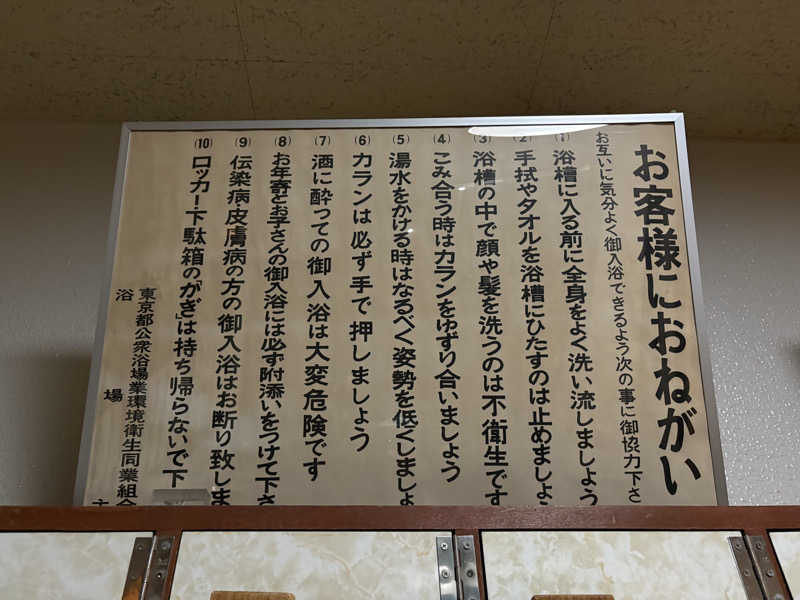 お客様におねがい
お互いに気分よく御入浴できるよう次の事に御協力下さ
(1) 浴槽に入る前に全身をよく洗い流しましょう
(2) 手拭やタオルを浴槽にひたすのは止めましょう
(3) 浴槽の中で顔や髪を洗うのは不衛生です
(4) こみ合う時はカランをゆずり合いましょう
(5) 湯水をかける時はなるべく姿勢を低くしましょ
(6) カランは必ず手で押しましょう
(7) 酒に酔っての御入浴は大変危険です
(8) お年寄とお子さんの御入浴には必ず附添いをつけて下さ
(9) 伝染病・皮膚病の方の御入浴はお断り致しま
(10) ロッカー下駄箱の「かぎ」は持ち帰らないで下
東京都公衆浴場業環境衛生同業組合
浴場主